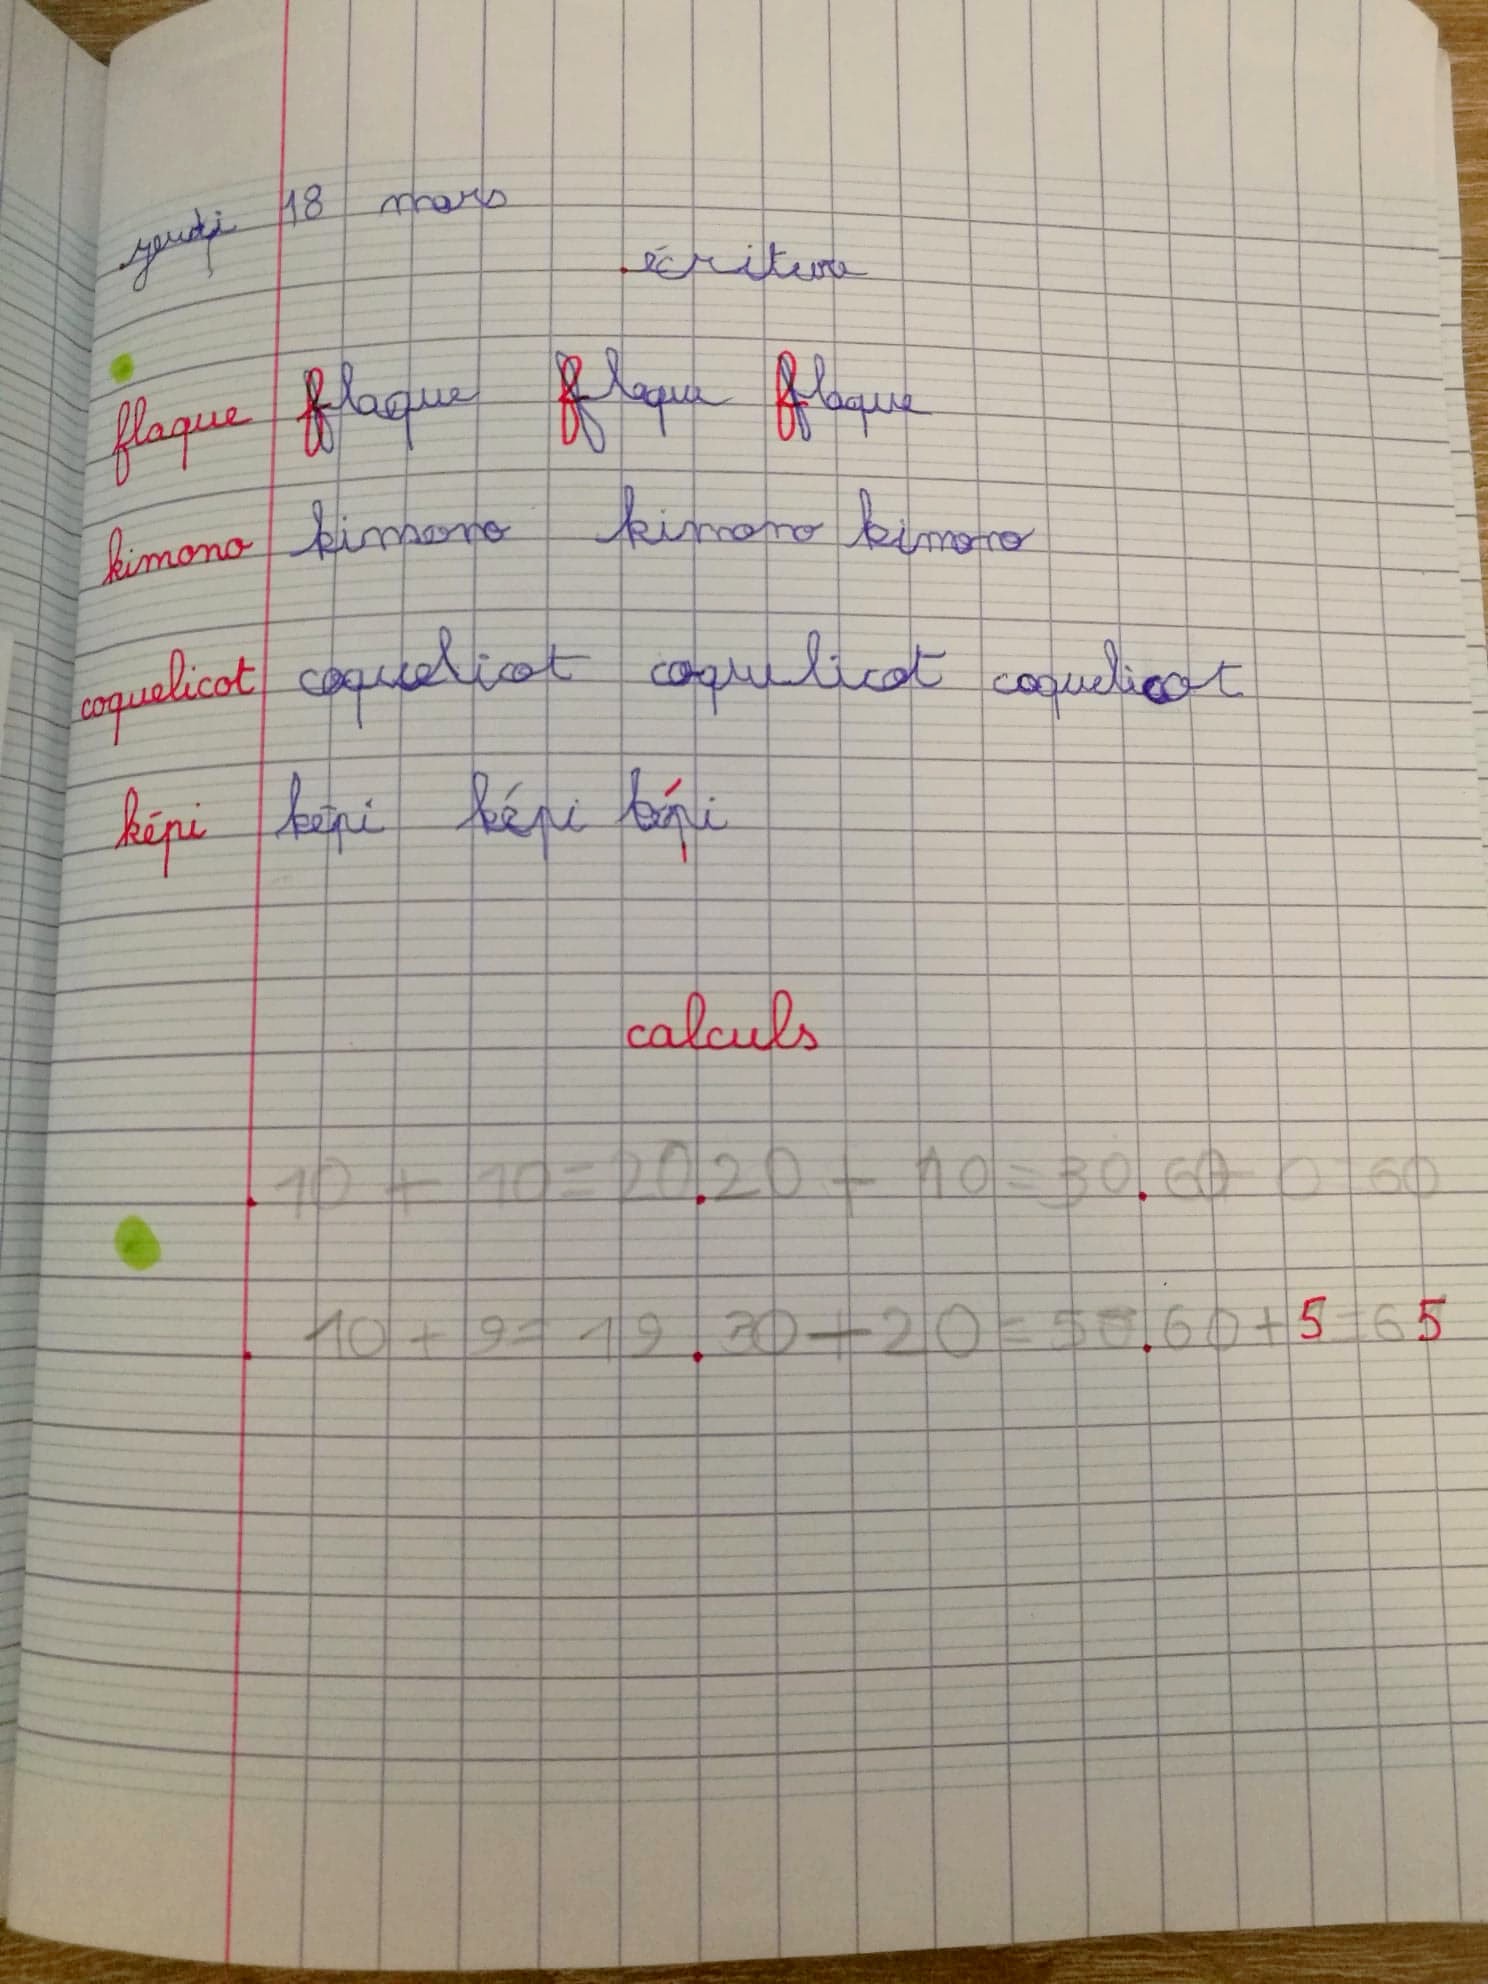 jeudi 18 mars
écriture
flaque flaque flaque flaque
kimono kimono kimono kimono
coquelicot coquelicot coqulicot coquelicot
képi képi képi képi
calculs
. 10 + 10 = 20 . 20 + 10 = 30 . 60 + 0 = 60
. 10 + 9 = 19 . 30 + 20 = 50 . 60 + 5 = 65